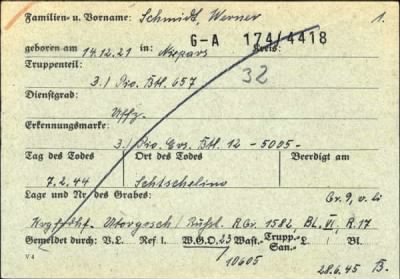 Familien- u. Vorname: Schmidt, Werner 1.
geboren am 14.12.21 in: Niepars Kreis:
G-A 174/4418
Truppenteil: 32
3./ Pio. Btl. 657
Dienstgrad:
Uffz.
Erkennungsmarke:
3./ Pio. Ers. Btl. 12 - 5005 -
Tag des Todes Ort des Todes Beerdigt am
7.2.44 Schtschelino
Lage und Nr. des Grabes: Gr. 9, v. li
Utorgosch / Rußl. R.Gr. 1582, Bl. VI, R. 17
Gemeldet durch: V.L. Ref I. W.G.O. 23 Wast.- Trupp.- L. Bl.
San.-
V 4 10605 28.6.45 B.